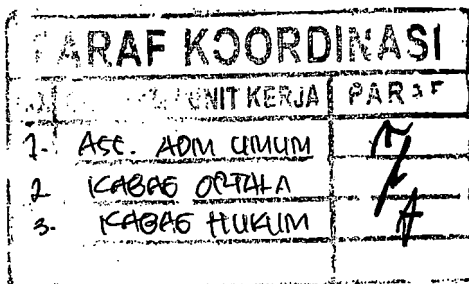 PARAF KOORDINASI
UNIT KERJA PARAF
1. ASS. ADM UMUM
2. KABAG ORTALA
3. KABAG HUKUM